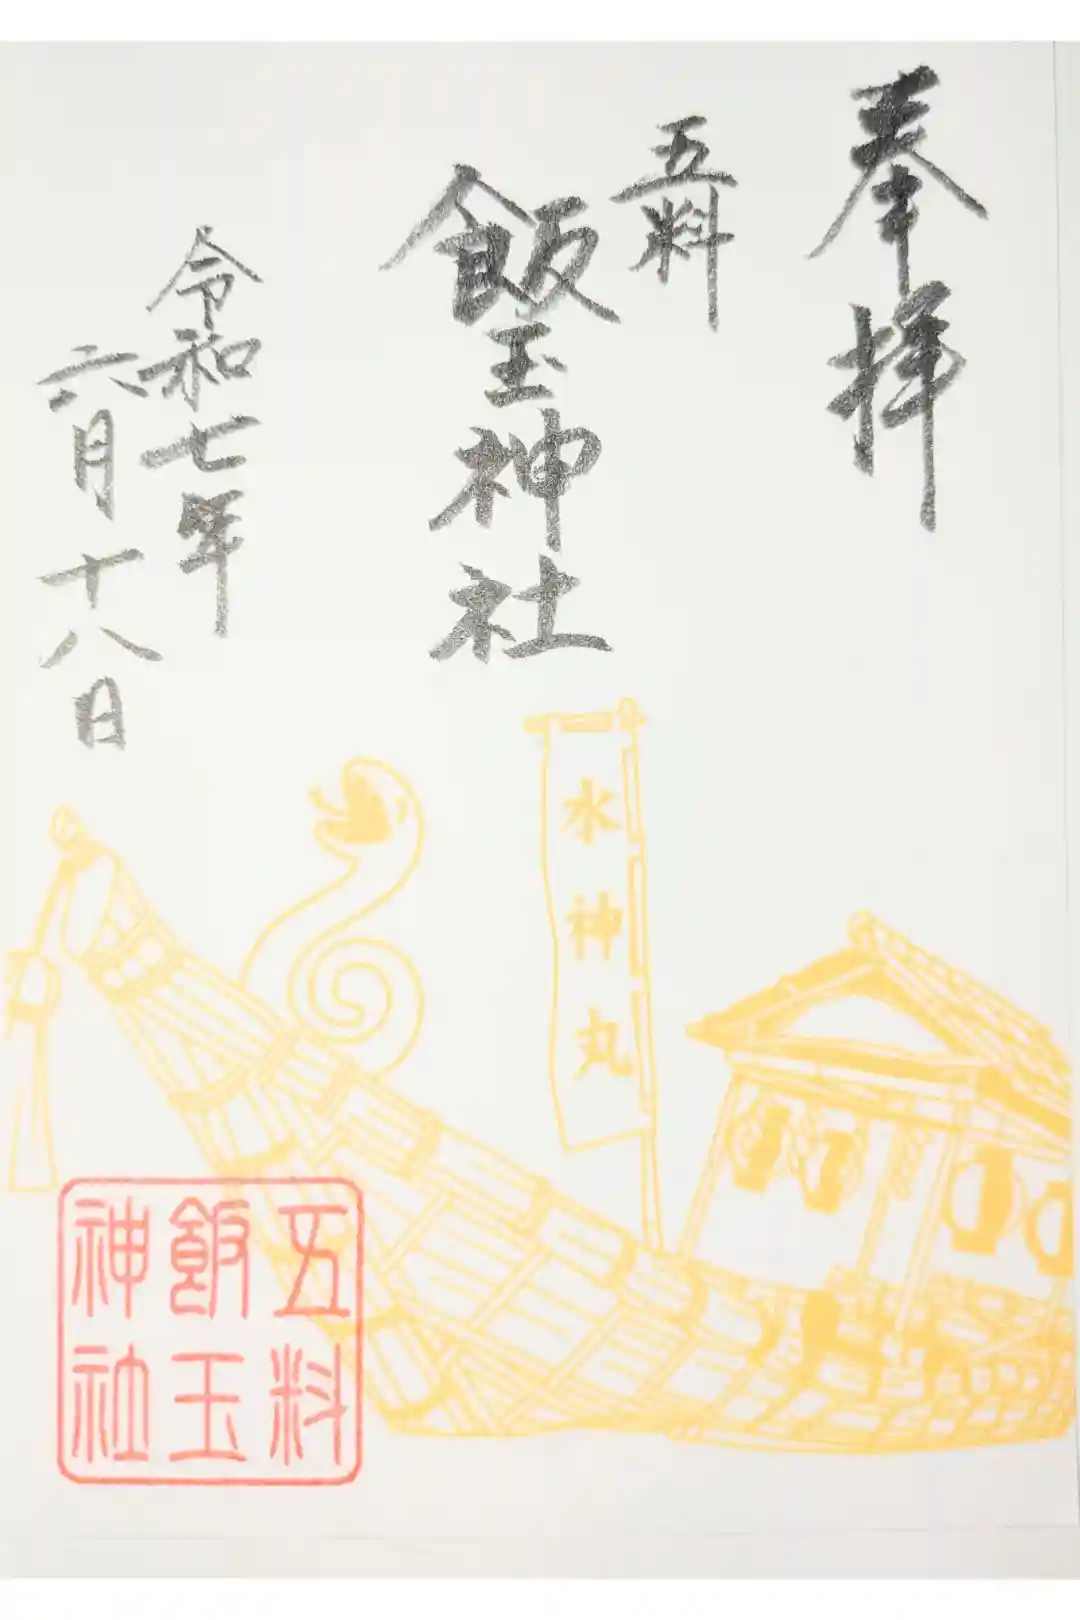 奉拝
五料
飯玉神社
令和七年
六月十八日
水神丸
五料
飯玉
神社